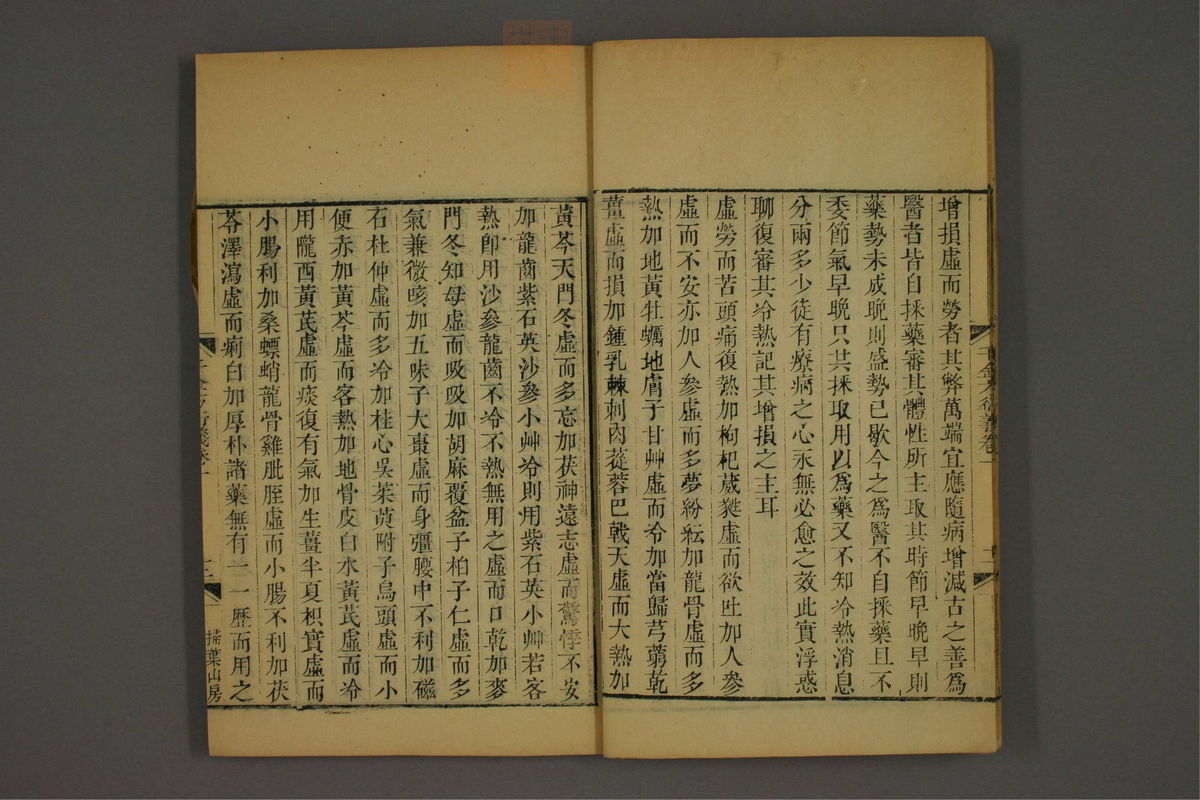 增損虛而勞者其弊萬端宜應隨病增減古之善爲
醫者皆自採藥審其體性所主取其時節早晚早則
藥勢未成晚則盛勢已歇今之爲醫不自採藥且不
委節氣早晚只共採取用以爲藥又不知冷熱消息
分兩多少徒有療病之心永無必愈之效此實浮惑
聊復審其冷熱記其增損之主耳
虛勞而苦頭痛復熱加枸杞葳蕤虛而欲吐加人參
虛而不安亦加人參虛而多夢紛紜加龍骨虛而多
熱加地黃牡蠣地膚子甘艸虛而冷加當歸芎藭乾
薑虛而損加鍾乳棘刺肉蓯蓉巴戟天虛而大熱加
千金方衍義卷一
黃芩天門冬虛而多忘加茯神遠志虛而驚悸不安
加龍齒紫石英沙參小艸冷則用紫石英小艸若客
熱卽用沙參龍齒不冷不熱無用之虛而口乾加麥
門冬知母虛而吸吸加胡麻覆盆子柏子仁虛而多
氣兼微咳加五味子大棗虛而身彊腰中不利加磁
石杜仲虛而多冷加桂心吳茱萸附子烏頭虛而小
便赤加黃芩虛而客熱加地骨皮白水黃芪虛而冷
用隴西黃芪虛而痰復有氣加生薑半夏枳實虛而
小腸利加桑螵蛸龍骨雞肶胵虛而小腸不利加茯
苓澤瀉虛而痢白加厚朴諸藥無有一一歷而用之
千金方衍義卷一
掃葉山房